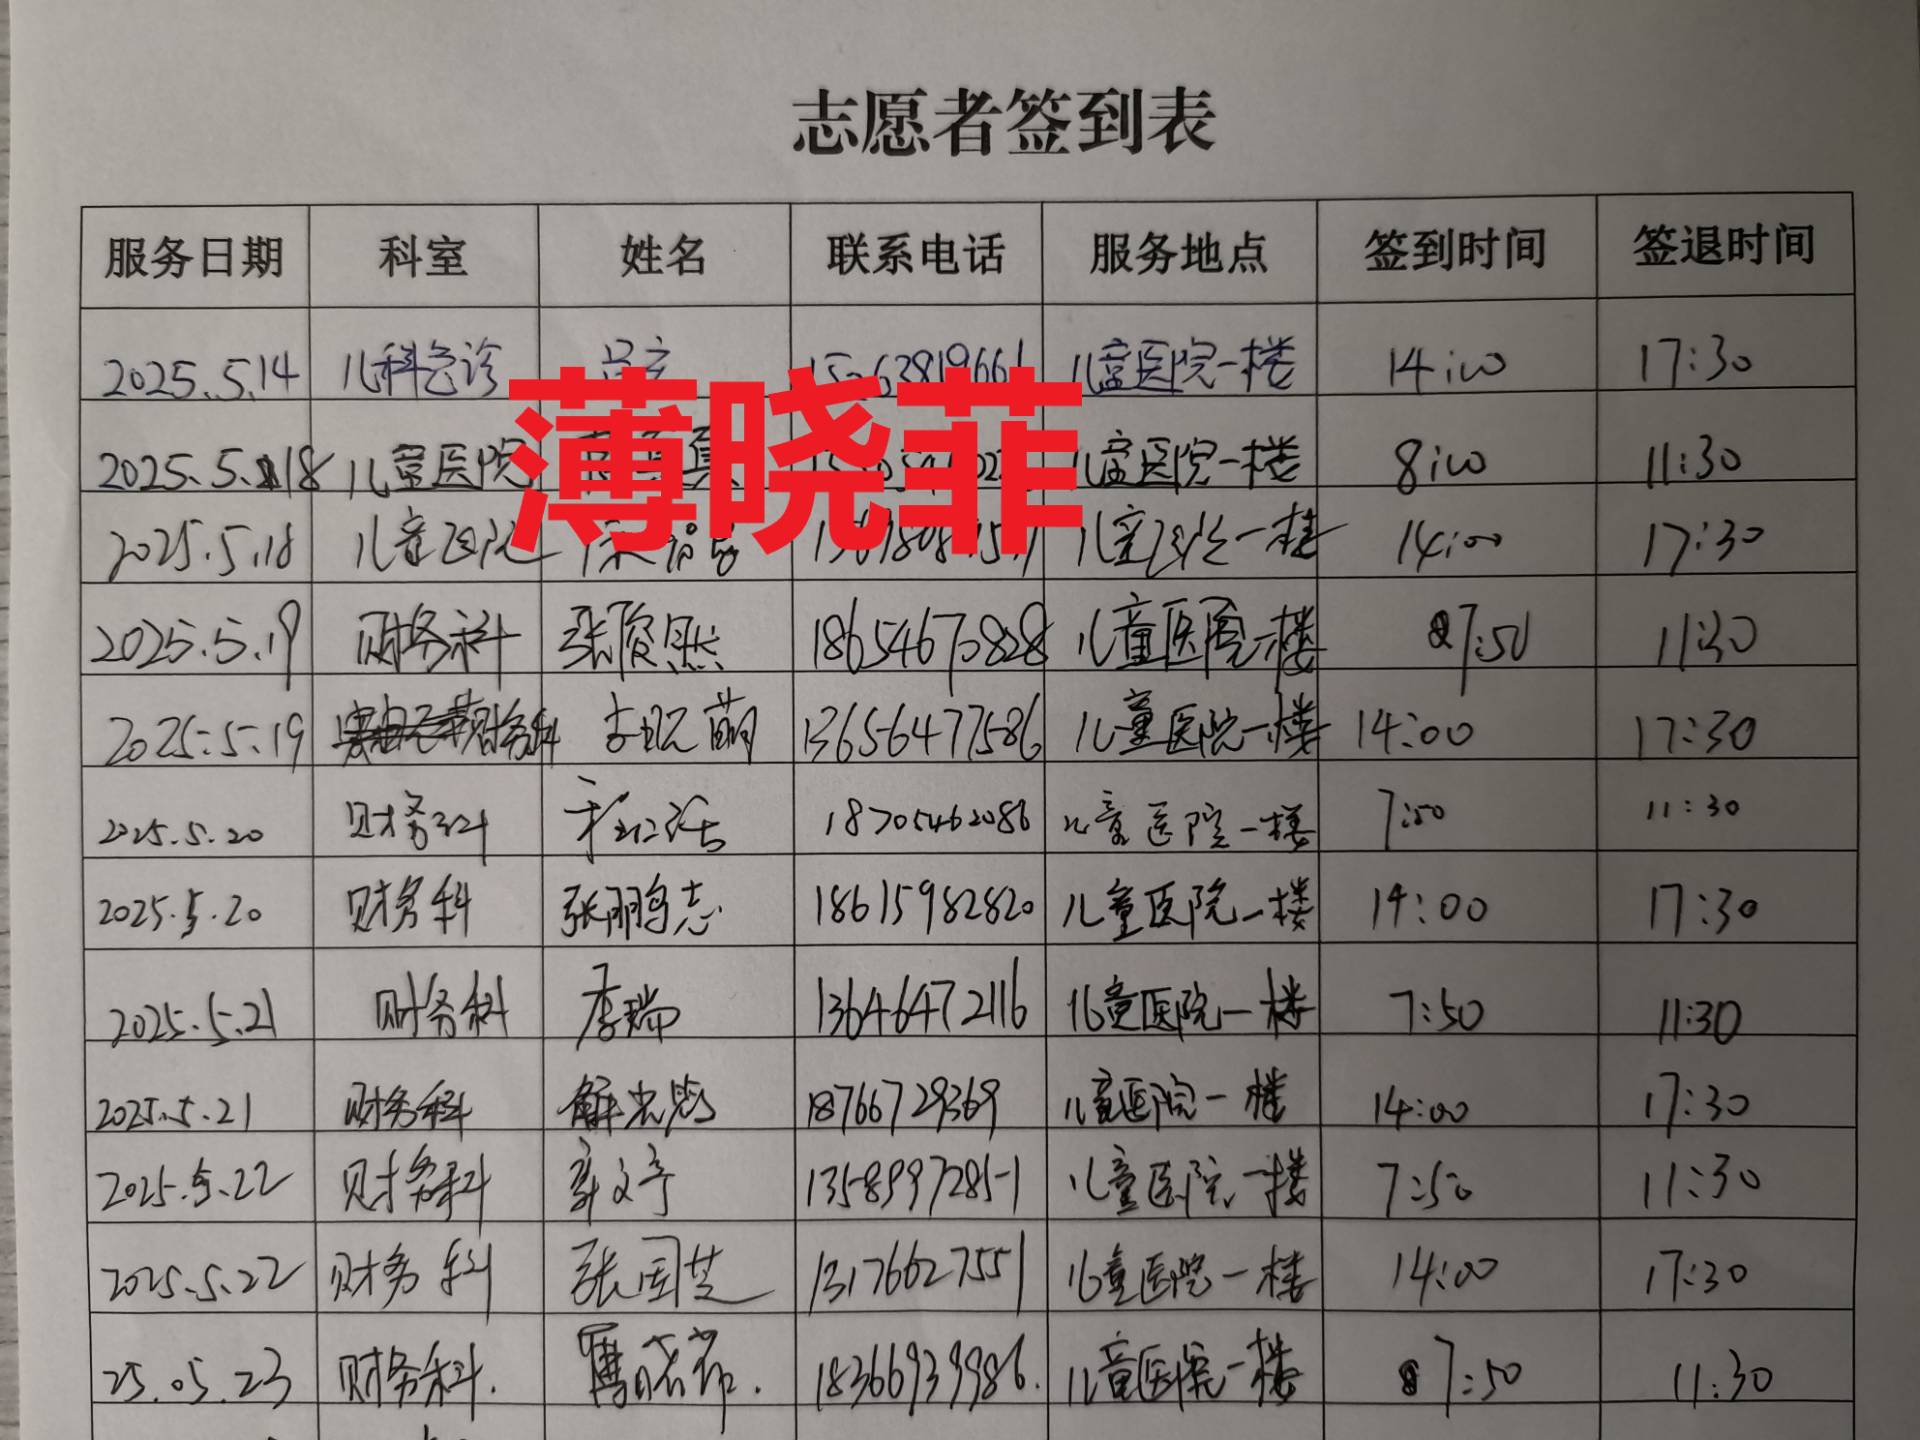 志愿者签到表
服务日期 科室 姓名 联系电话 服务地点 签到时间 签退时间
2025.5.14 儿科急诊 儿童医院一楼 14:00 17:30
薄晓菲
2025.5.18 儿童医院 儿童医院一楼 8:00 11:30
2025.5.18 儿童医院 儿童医院一楼 14:00 17:30
2025.5.19 财务科 张俊熙 18654670828 儿童医院一楼 7:50 11:30
2025.5.19 财务科 李昭萌 13656477586 儿童医院一楼 14:00 17:30
2025.5.20 财务科 18705462086 儿童医院一楼 7:50 11:30
2025.5.20 财务科 张鹏志 18615982820 儿童医院一楼 14:00 17:30
2025.5.21 财务科 李瑞 13646472116 儿童医院一楼 7:50 11:30
2025.5.21 财务科 18766729369 儿童医院一楼 14:00 17:30
2025.5.22 财务科 13589972851 儿童医院一楼 7:50 11:30
2025.5.22 财务科 张国芝 13176627551 儿童医院一楼 14:00 17:30
25.05.23 财务科. 18366939986. 儿童医院一楼 7:50 11:30